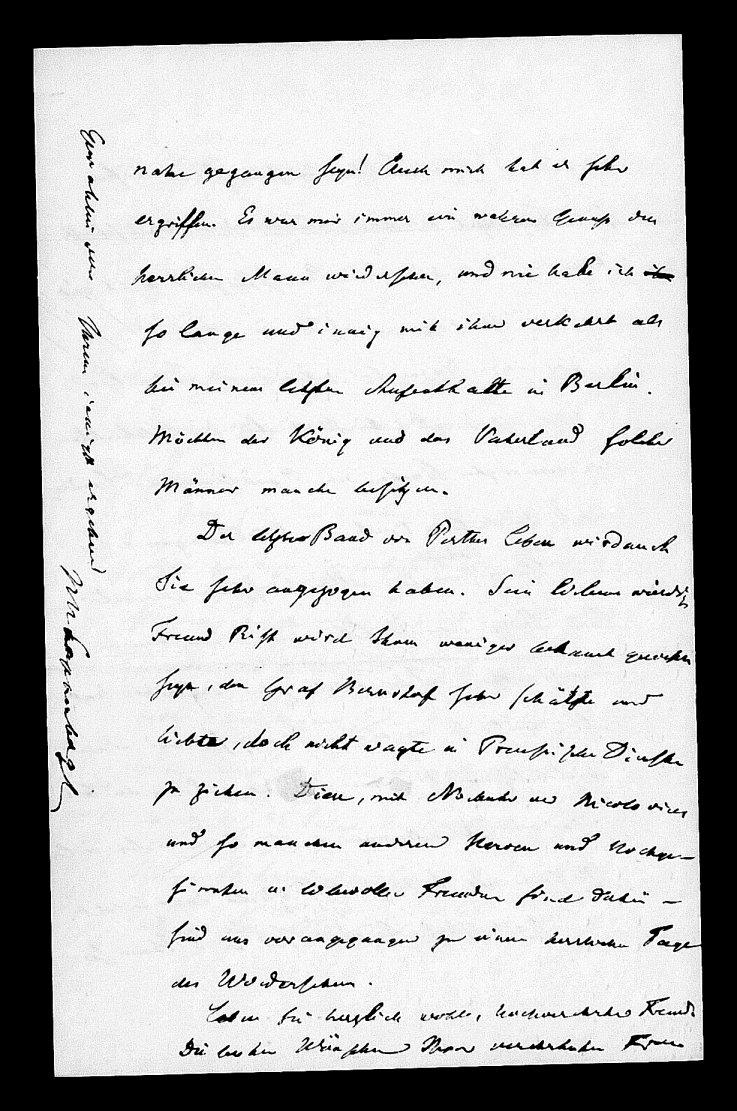 nahe gegangen seyn! Auch mich hat es sehr
ergriffen. Es war mir immer ein wahrer Genuß den
herrlichen Mann wiedersehen, und nie habe ich
so lange und innig mit ihm verkehrt als
bei meinem letzten Aufenthalte in Berlin.
Möchten der König und das Vaterland solcher
Männer manche besitzen.
Der letzte Band von Perthes Leben wird auch
Sie sehr angezogen haben. Sein liebenswürdig
Freund Rist wird Ihnen weniger bekannt gewesen
seyn, den Graf Bernstorf sehr schätzte und
liebte, doch nicht wagte in Preußische Dienste
zu ziehen. Diese, mit Niebuhr und Nicolovius
und so manchen anderen Heroen und Hochge-
sinnten u. liebevollen Freunden sind dahin –
sind uns vorangegangen zu einem herrlichen Tage
des Wiedersehens.
Leben Sie herzlich wohl, hochverehrter Freund
Die besten Wünsche Ihrer verehrten Frau
Gemahlin von Ihrem innigst ergebenen
Lappenberg